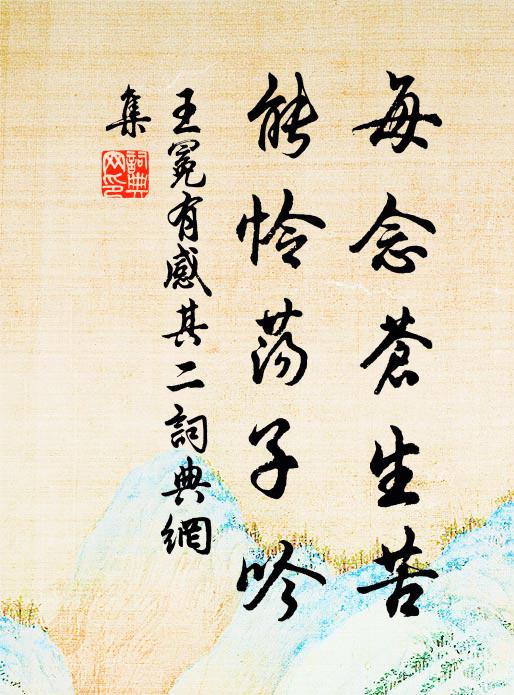 每念蒼生苦
能怜蕩子吟
王冕有感其二詞典網
集
詞典
网印